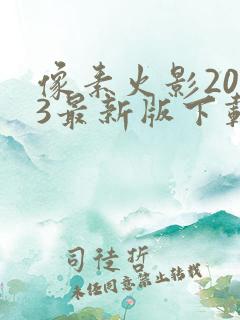 像素火影20
3最新版下载
司徒哲
未经同意禁止转载